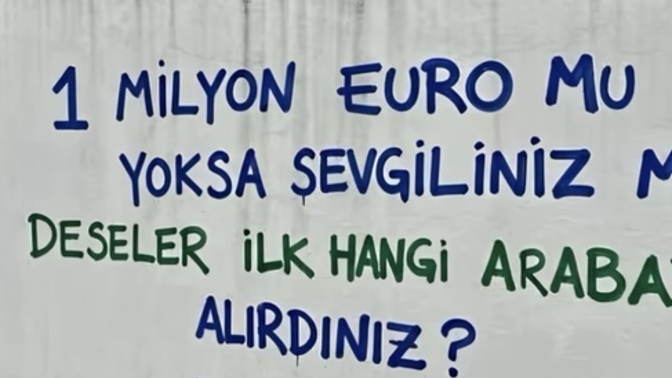 1 MİLYON EURO MU
YOKSA SEVGİLİNİZ
DESELER İLK HANGİ ARABA
ALIRDINIZ?